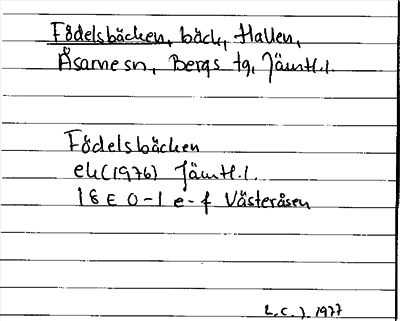 Födelsbäcken, bäck, Hallen,
Åsarne sn, Bergs tg, Jämtl.l.
Födelsbäcken
ek (1976) Jämtl.l.
18 E 0-1 e-f Västeråsen
L.C.J. 1977